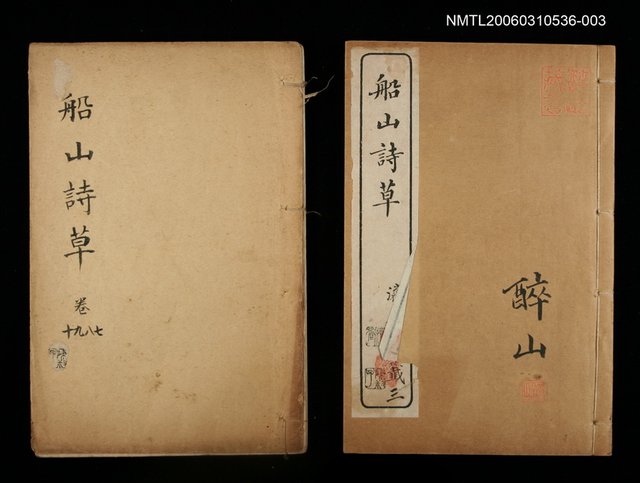 NMTL20060310536-003
船山詩草
卷
七八九十
船山詩草
三
醉山